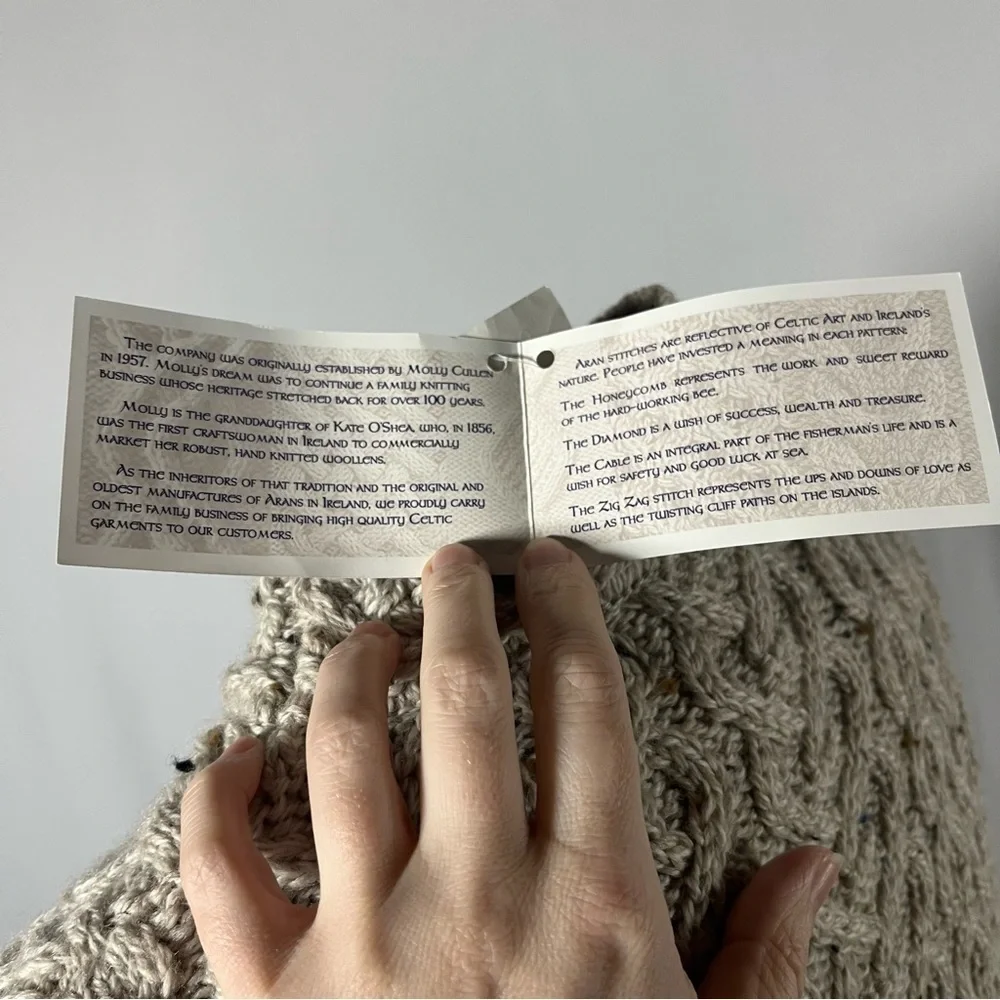 The company was originally established by Molly Cullen
in 1957. Molly's dream was to continue a family knitting
business whose heritage stretched back for over 100 years.
Molly is the granddaughter of Kate O'Shea, who, in 1856,
was the first craftswoman in Ireland to commercially
market her robust, hand knitted woollens.
As the inheritors of that tradition and the original and
oldest manufactures of Arans in Ireland, we proudly carry
on the family business of bringing high quality Celtic
garments to our customers.
Aran stitches are reflective of Celtic Art and Ireland's
nature. People have invested a meaning in each pattern:
The Honeycomb represents the work and sweet reward
of the hard-working bee.
The Diamond is a wish of success, wealth and treasure.
The Cable is an integral part of the fisherman's life and is a
wish for safety and good luck at sea.
The Zig Zag stitch represents the ups and downs of love as
well as the twisting cliff paths on the islands.